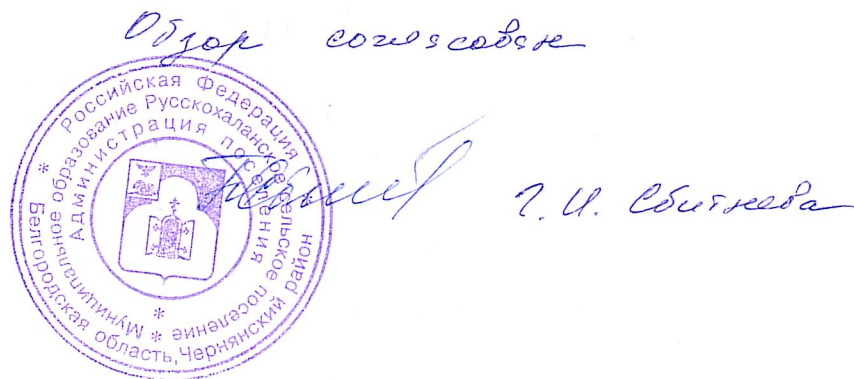 Обзор согласован
Г. И. Сбитнева
* Российская Федерация * Белгородская область, Чернянский район
Муниципальное образование Русскохаланское сельское поселение *
Администрация поселения *